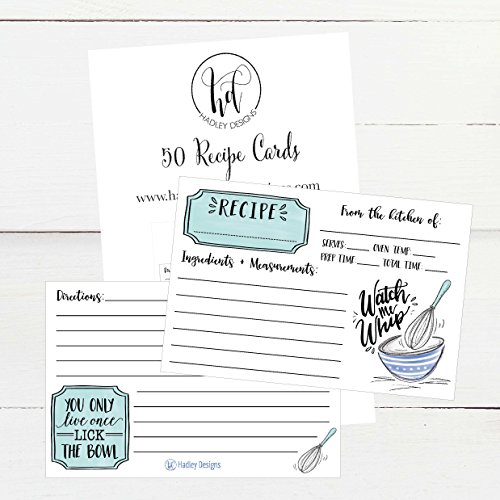 hd
HADLEY DESIGNS
50 Recipe Cards
RECIPE
From the kitchen of:
SERVES: OVEN TEMP:
PREP TIME TOTAL TIME:
Ingredients + Measurements:
Watch
me
Whip
Directions:
YOU ONLY
live once
LICK
THE BOWL
hd Hadley Designs